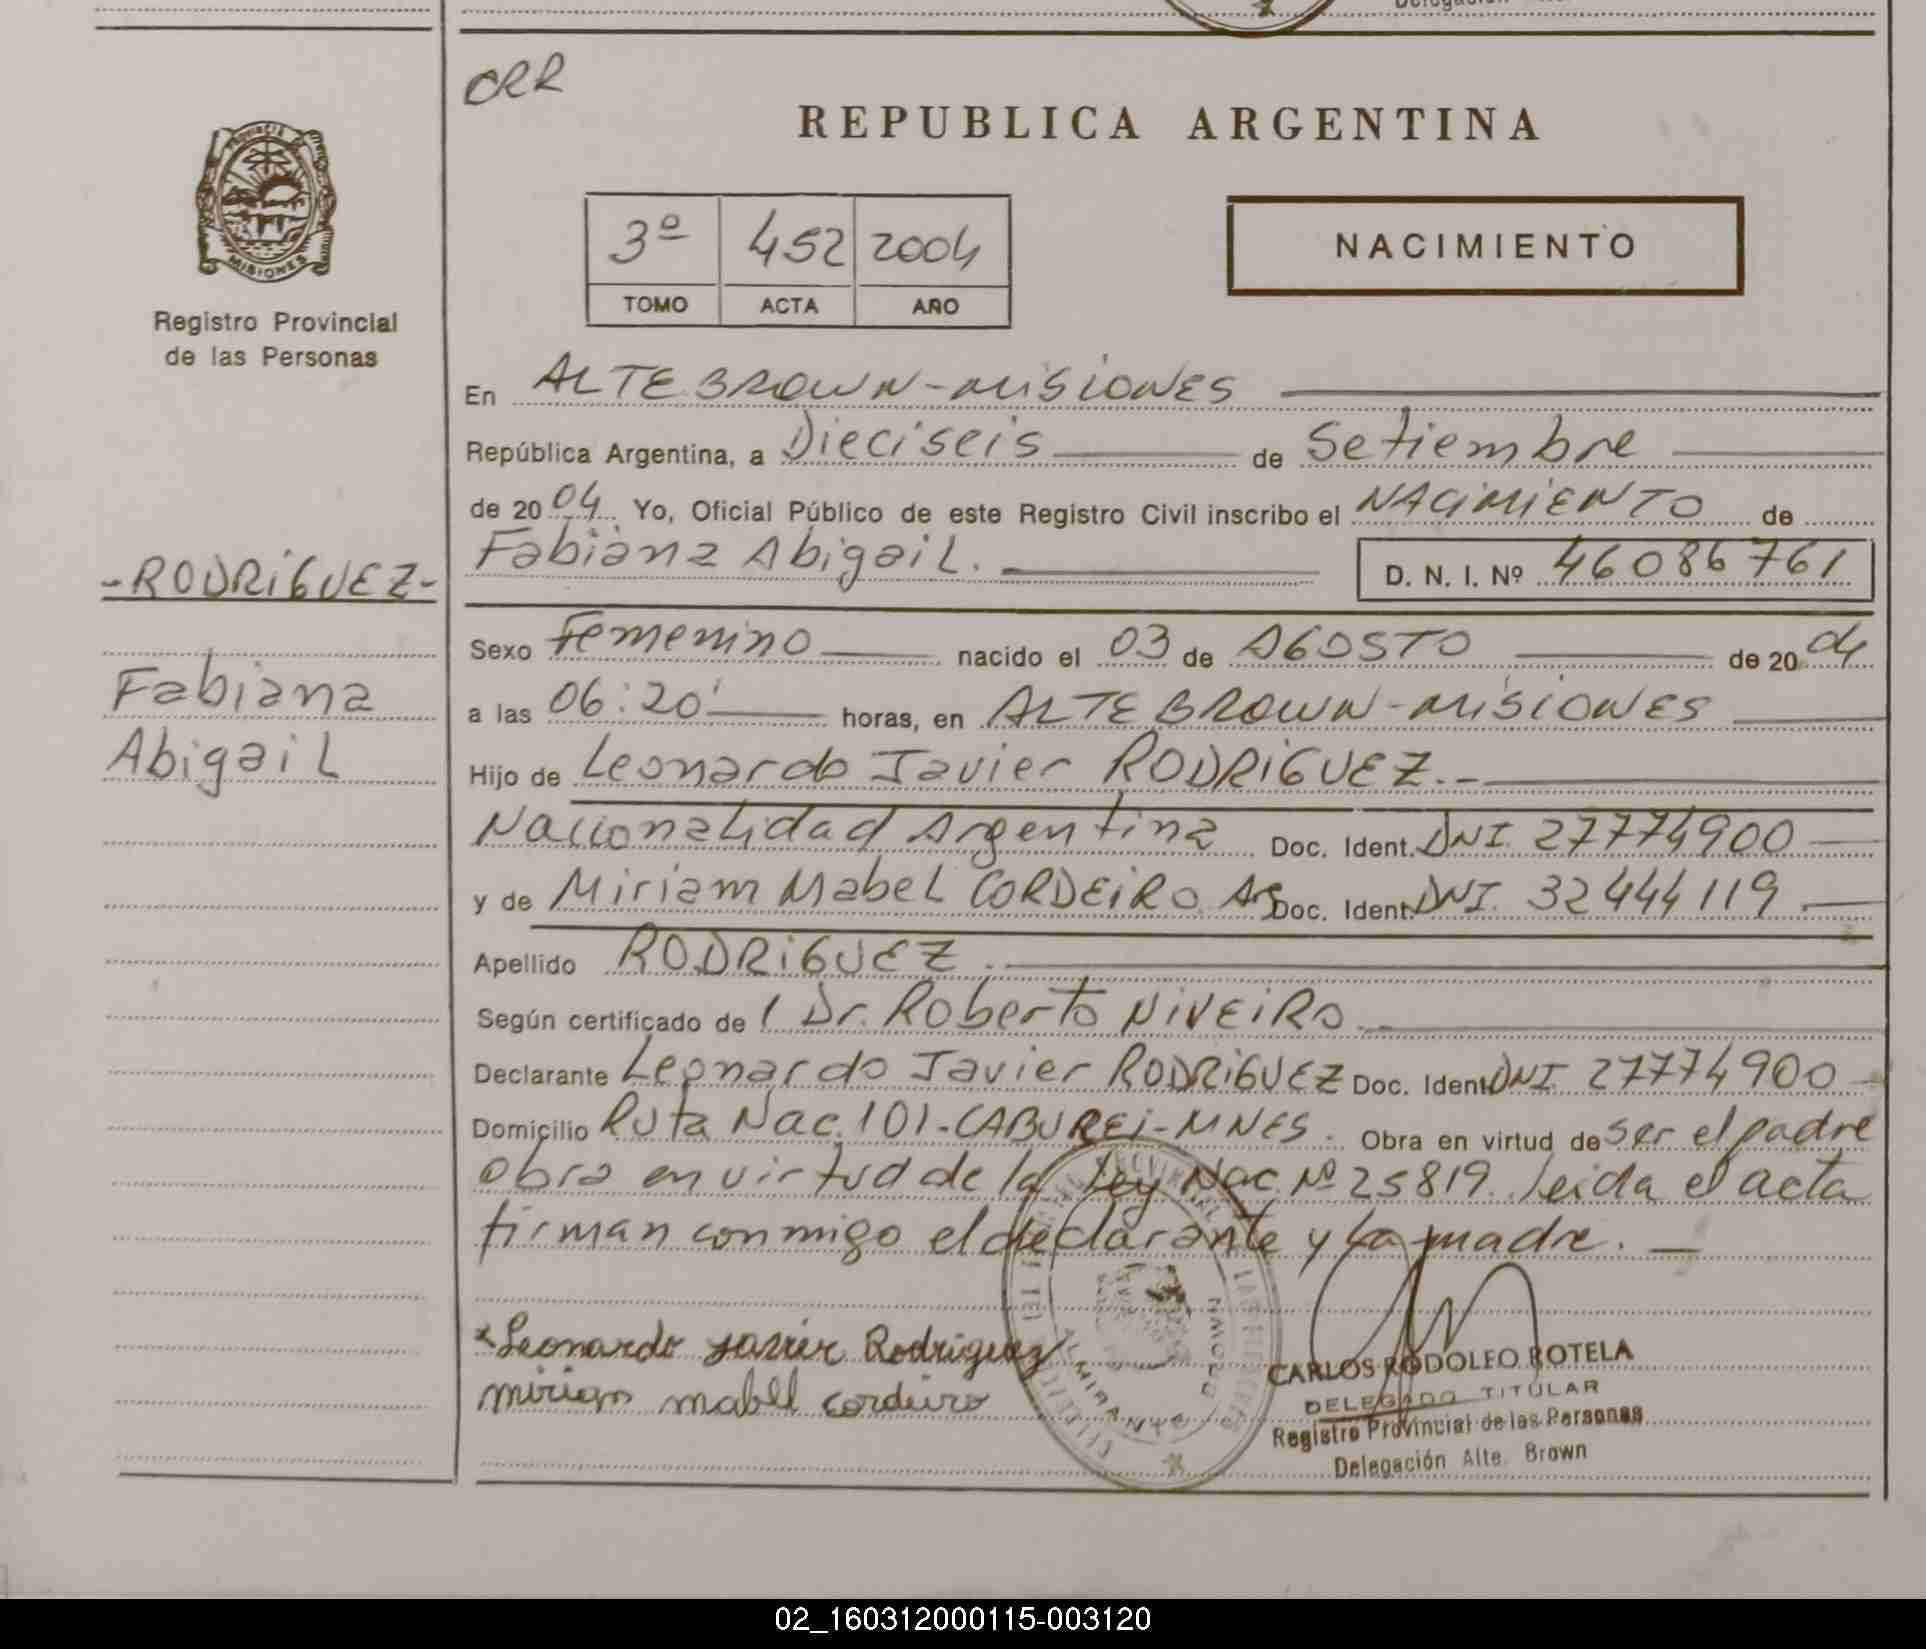 CRR
REPUBLICA ARGENTINA
PROVINCIA
MISIONES
Registro Provincial
de las Personas
3º 452 2004
TOMO ACTA AÑO
NACIMIENTO
En ALTE BROWN-MISIONES
República Argentina, a Dieciseis de Setiembre
de 2004. Yo, Oficial Público de este Registro Civil inscribo el NACIMIENTO de
Fabiana Abigail.
D. N. I. Nº 46086761
-RODRIGUEZ-
Fabiana
Abigail
Sexo Femenino nacido el 03 de AGOSTO de 2004
a las 06:20' horas, en ALTE BROWN-MISIONES
Hijo de Leonardo Javier RODRIGUEZ.-
Nacionalidad Argentina Doc. Ident. DNI 27774900
y de Miriam Mabel CORDEIRO. Arg Doc. Ident. DNI. 32444119.
Apellido RODRIGUEZ.
Según certificado de l Dr. Roberto NIVEIRO
Declarante Leonardo Javier RODRIGUEZ Doc. Ident. DNI 27774900
Domicilio Ruta Nac. 101-CABUREI-MNES. Obra en virtud de ser el padre
obra en virtud de la Ley Nac Nº 25819. leida el acta
firman conmigo el declarante y la madre.
Leonardo Javier Rodriguez
miriam mabel cordeiro
ALMIRANTE
CARLOS RODOLFO ROTELA
DELEGADO TITULAR
Registro Provincial de las Personas
Delegación Alte. Brown
02_160312000115-003120